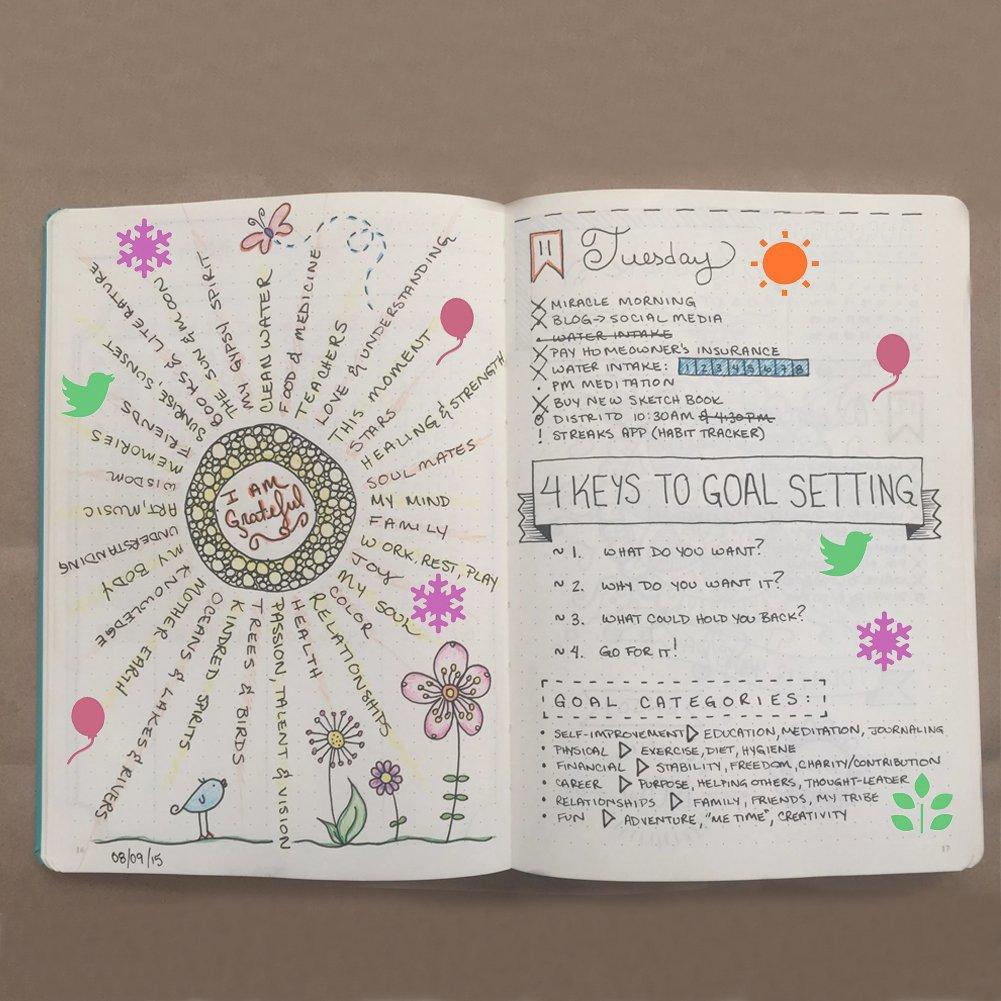 I AM
Grateful
CLEAN WATER
FOOD & MEDICINE
TEACHERS
LOVE & UNDERSTANDING
THIS MOMENT
STARS
HEALING & STRENGTH
SOULMATES
MY MIND
FAMILY
WORK, REST, PLAY
JOY
MY SOUL
COLOR
RELATIONSHIPS
HEALTH
PASSION, TALENT & VISION
TREES & BIRDS
KINDRED SPIRITS
OCEANS & LAKES & RIVERS
MOTHER EARTH
KNOWLEDGE
MY BODY
UNDERSTANDING
ART, MUSIC
WISDOM
MEMORIES
FRIENDS
SUNRISE, SUNSET
BOOKS & LITERATURE
THE SUN & MOON
MY GYPSY SPIRIT
16
08/09/15
11
Tuesday
X MIRACLE MORNING
X BLOG → SOCIAL MEDIA
• WATER INTAKE
X PAY HOMEOWNER'S INSURANCE
X WATER INTAKE: 1 2 3 4 5 6 7 8
• PM MEDITATION
X BUY NEW SKETCH BOOK
o DISTRITO 10:30AM & 4:30 PM
! STREAKS APP (HABIT TRACKER)
4 KEYS TO GOAL SETTING
~ 1. WHAT DO YOU WANT?
~ 2. WHY DO YOU WANT IT?
~ 3. WHAT COULD HOLD YOU BACK?
~ 4. GO FOR IT!
GOAL CATEGORIES:
• SELF-IMPROVEMENT ▷ EDUCATION, MEDITATION, JOURNALING
• PHYSICAL ▷ EXERCISE, DIET, HYGIENE
• FINANCIAL ▷ STABILITY, FREEDOM, CHARITY/CONTRIBUTION
• CAREER ▷ PURPOSE, HELPING OTHERS, THOUGHT-LEADER
• RELATIONSHIPS ▷ FAMILY, FRIENDS, MY TRIBE
• FUN ▷ ADVENTURE, "ME TIME", CREATIVITY
17